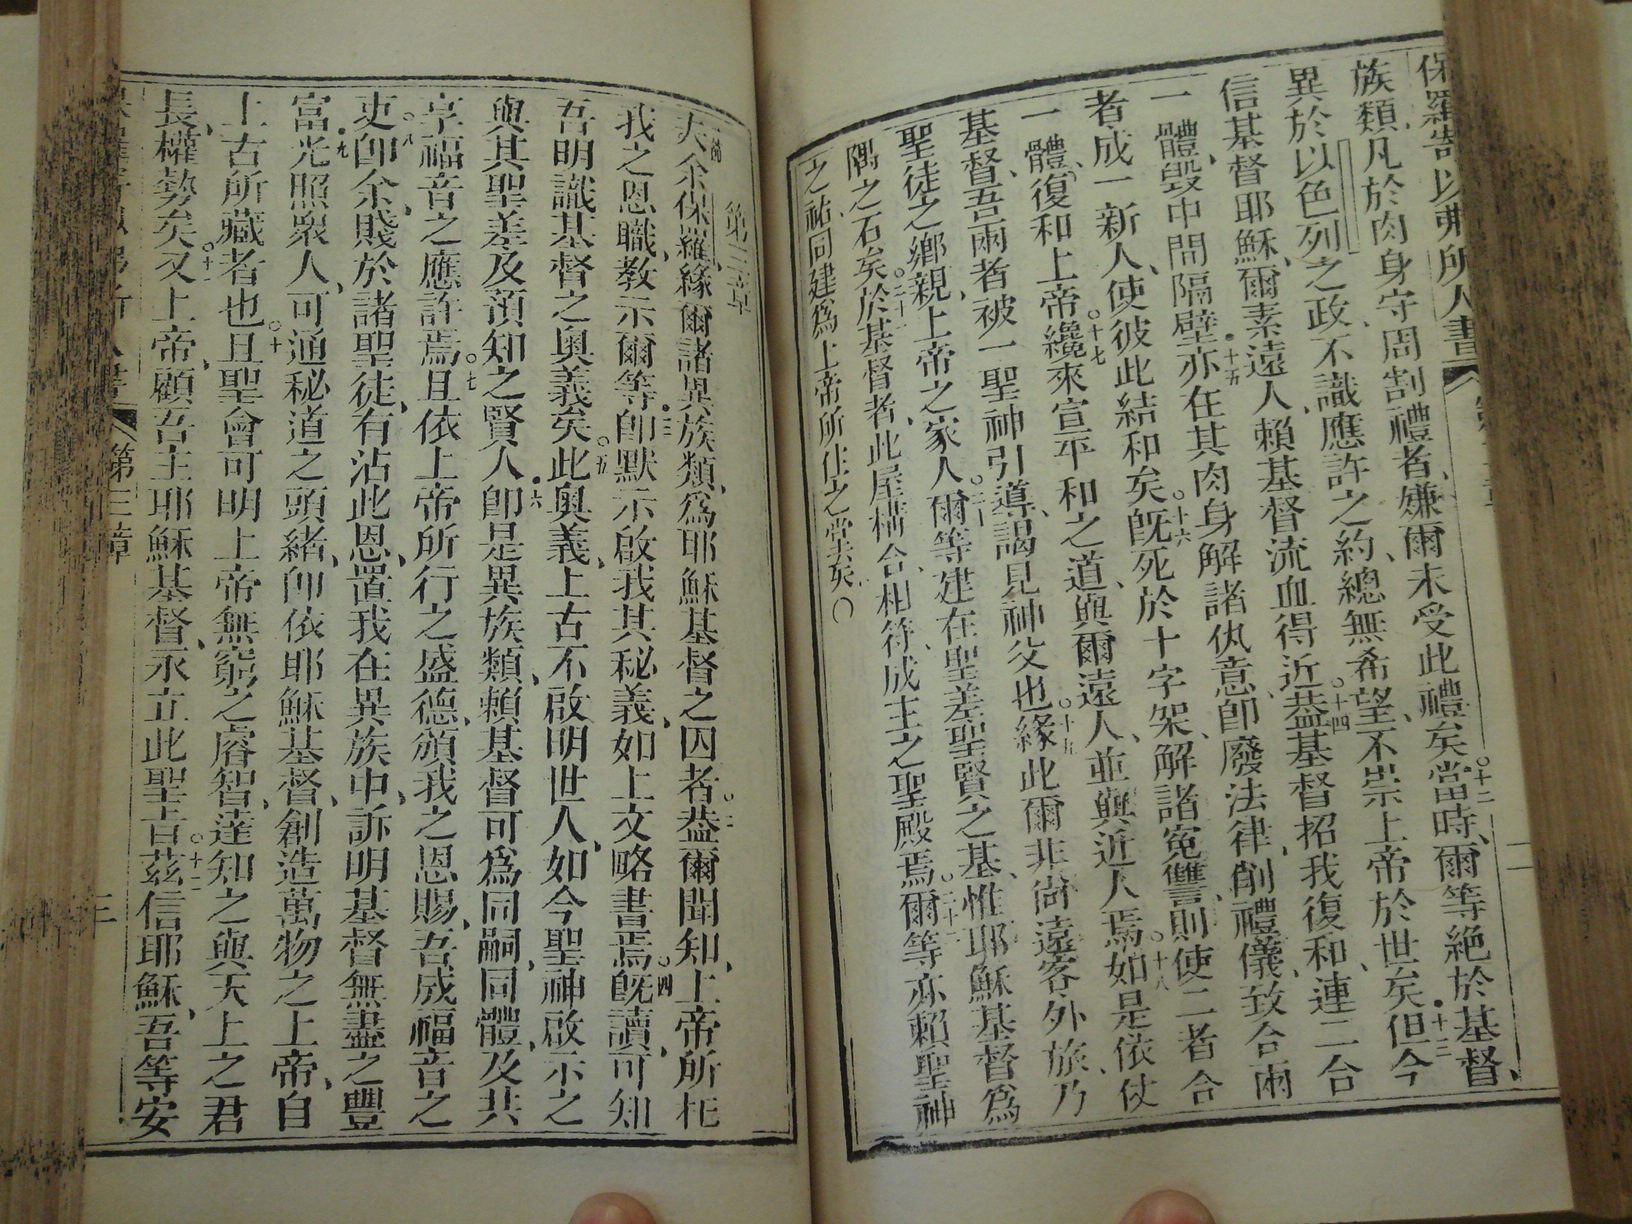 保羅寄以弗所人書
族類、凡於肉身守周割禮者、嫌爾未受此禮矣○十二當時、爾等絕於基督、
異於以色列之政、不識應許之約、總無希望、不崇上帝於世矣十三但今
信基督耶穌、爾素遠人、賴基督流血得近○十四蓋基督招我復和、連二合
一體、毀中間隔壁十五亦在其肉身解諸仇意、卽廢法律、削禮儀、致合兩
者成一新人、使彼此結和矣○十六旣死於十字架、解諸寃讐、則使二者合
一體、復和上帝○十七纔來宣平和之道、與爾遠人、並與近人焉○十八如是依仗
基督、吾兩者被一聖神引導、謁見神父也○十九緣此爾非尙遠客外旅、乃
聖徒之鄉親、上帝之家人○二十爾等建在聖差聖賢之基、惟耶穌基督爲
隅之石矣○二十一於基督者、此屋構合相符、成主之聖殿焉○二十二爾等亦賴聖神
之祐、同建爲上帝所住之堂矣○
第三章
夫余保羅緣爾諸異族類、爲耶穌基督之囚者○二蓋爾聞知、上帝所托
我之恩職、教示爾等三卽默示啟我其秘義、如上文略書焉○四旣讀、可知
吾明識基督之奧義矣○五此奧義、上古不啟明世人、如今聖神啟示之
與其聖差及預知之賢人六卽是異族類、賴基督可爲同嗣、同體、及共
享福音之應許焉○七且依上帝所行之盛德、頒我之恩賜、吾成福音之
吏○八卽余賤於諸聖徒、有沾此恩、置我在異族中、訴明基督無盡之豐
富九光照衆人、可通秘道之頭緒、卽依耶穌基督、創造萬物之上帝、自
上古所藏者也○十且聖會可明上帝無窮之睿智、達知之與天上之君
長、權勢矣○十一又上帝、顧吾主耶穌基督、永立此聖旨○十二茲信耶穌、吾等安
第三章
三